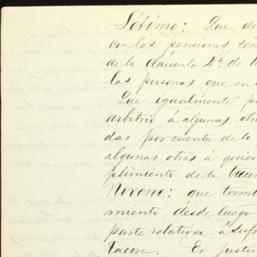 Sétimo: Que de
con las pensiones, 
de la Cláusula 4ª de l
las personas que en
Que igualmente p
arbitrio á algunas otr
das por cuenta de lo
algunas otras á quien
plimiento de la
Noveno: que tamb
miento desde luego
parte relativa á sufr
Es justi